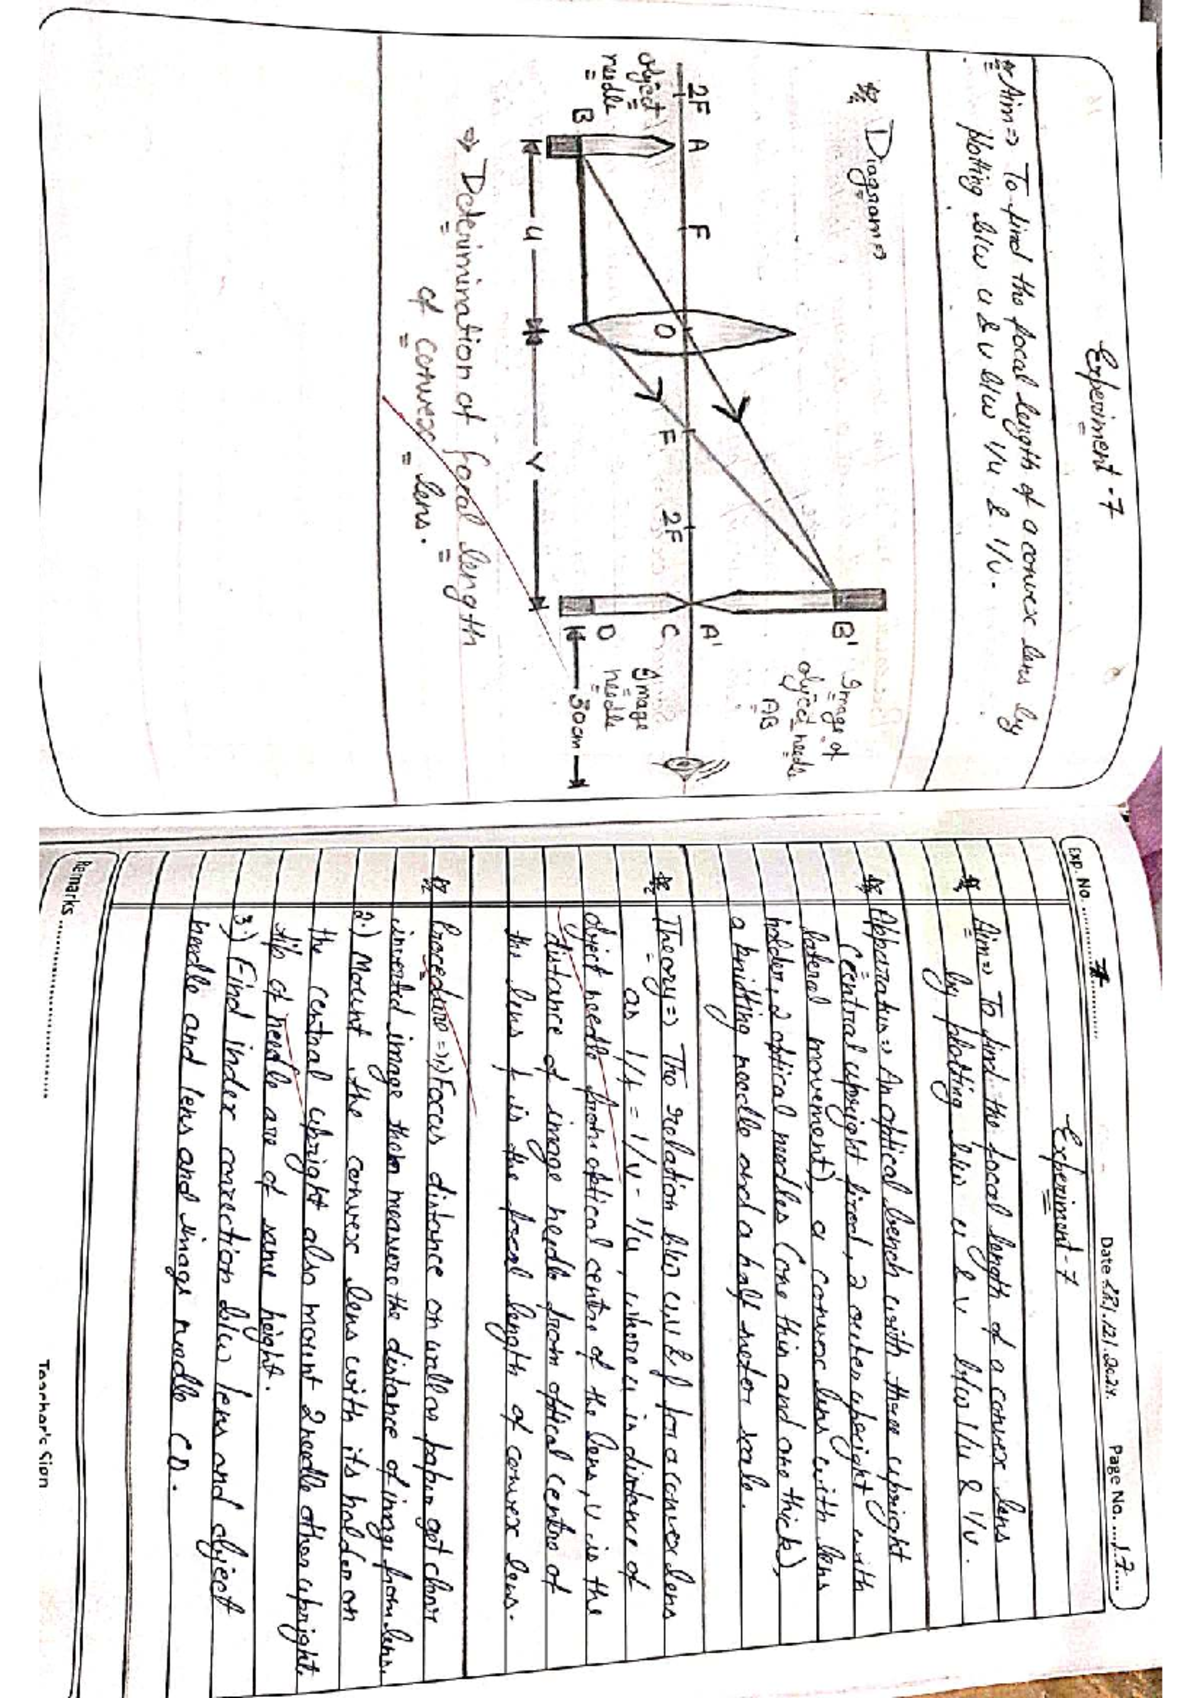 Experiment-7
Aim⇒ To find the focal length of a convex lens by
plotting b/w u & v b/w 1/u & 1/v.
Diagram⇒
2F A F O F 2F C A'
object
needle
B
B'
Image of
object needle
AB
D
Image
needle
u
v
30cm
⇒ Deterimination of focal length
of convex lens.
Exp. No. 7
Date 28/12/2024
Page No. 17
Experiment-7
Aim⇒ To find the focal length of a convex lens
by plotting b/w u & v b/w 1/u & 1/v.
Apparatus⇒ An optical bench with three upright
(central upright fixed, 2 outer upright with
lateral movement), a convex lens with lens
holder, 2 optical needles (one thin and one thick),
a knitting needle and a half meter scale.
Theory⇒ The relation b/w u, v & f for a convex lens
as 1/f = 1/v - 1/u, where u is distance of
object needle from optical centre of the lens, v is the
distance of image needle from optical centre of
the lens f is the focal length of convex lens.
Procedure⇒1) Focus distance on wall or paper get clear
inverted image then measure the distance of image from lens.
2.) Mount the convex lens with its holder on
the central upright also mount 2 needle other upright.
tip of needle are of same height.
3) Find index correction b/w lens and object
needle and lens and image needle CD.
Remarks
Teacher's Sign